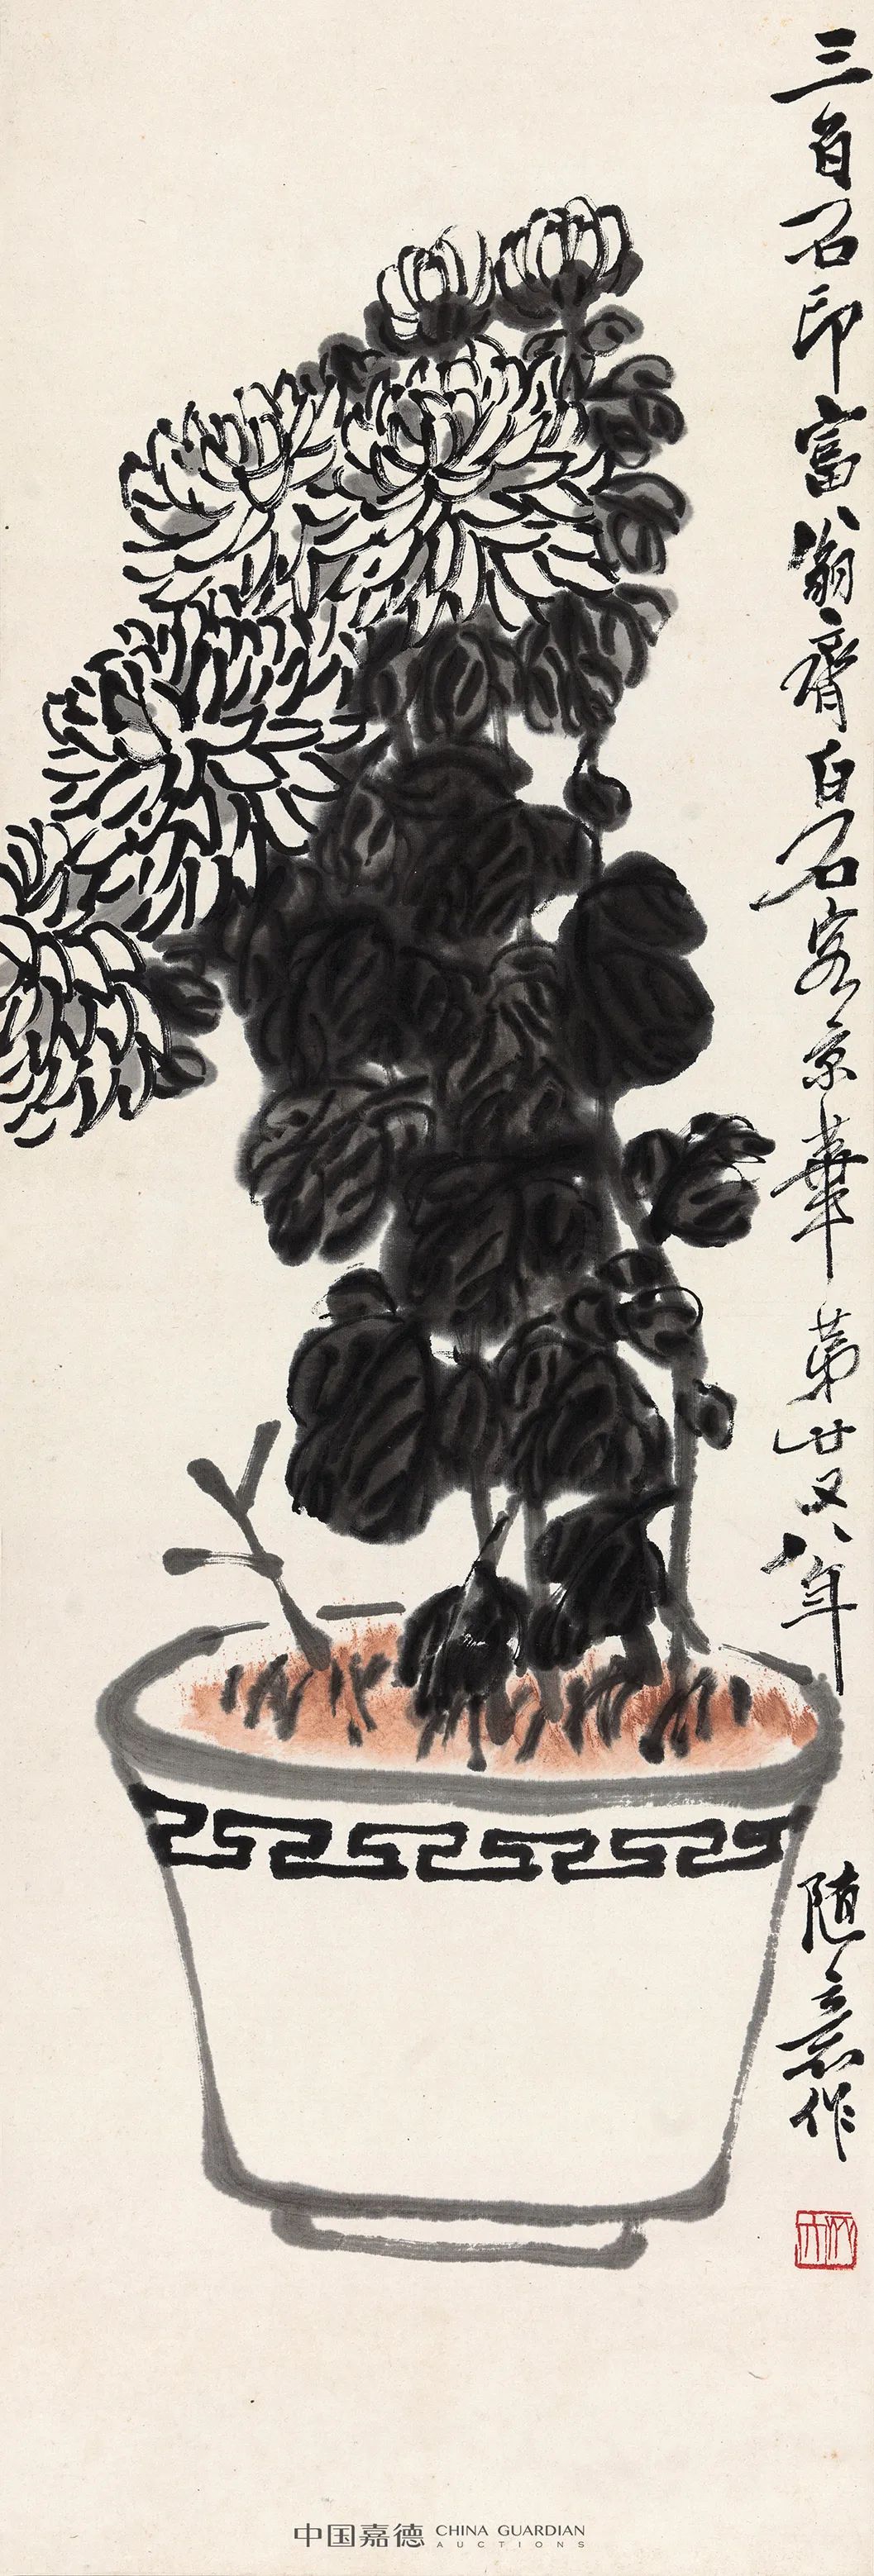 三百石印富翁齊白石客京華第廿又八年
隨意作
木人
中国嘉德 CHINA GUARDIAN
AUCTIONS